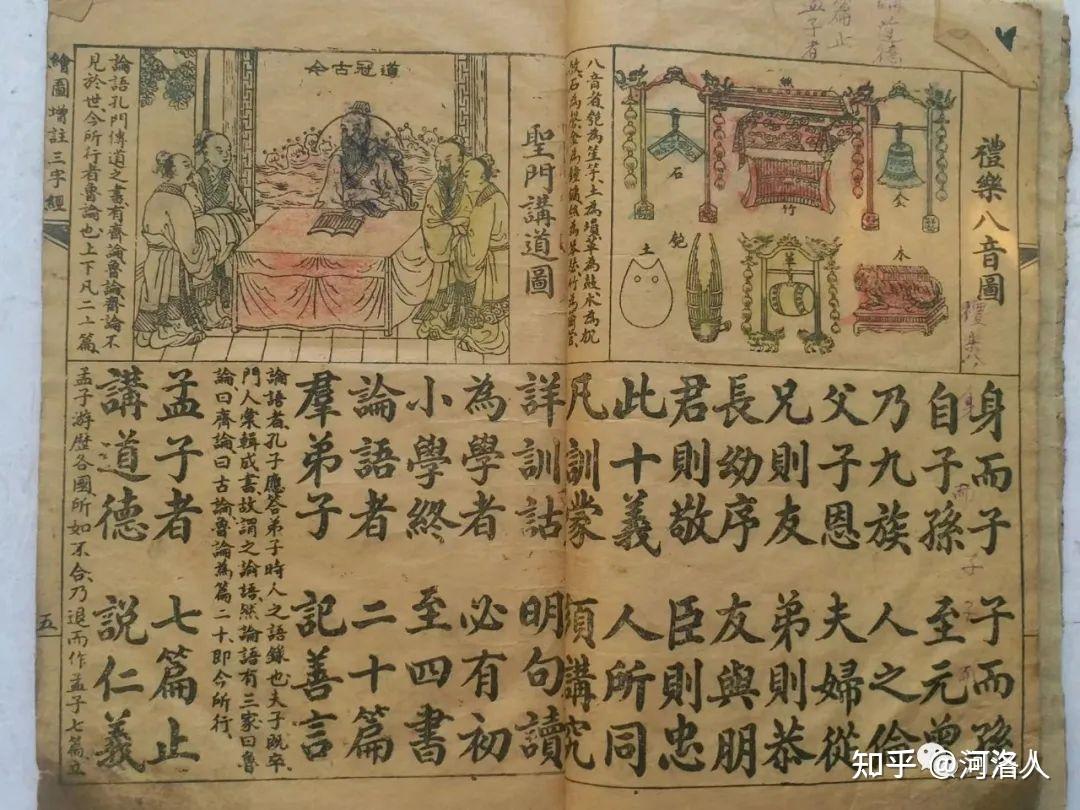 禮樂八音圖
八音者匏為笙竽土為壎革為鼓木為柷
石為磬金為鐘
絲
石
竹
金
匏
土
革
木
聖門講道圖
道冠古今
論語孔門傳道之書有齊論魯論齊論不
見於世今所行者魯論也上下凡二十篇
繪圖增註三字經
身而子 子而孫
自子孫 至元曾
乃九族 人之倫
父子恩 夫婦從
兄則友 弟則恭
長幼序 友與朋
君則敬 臣則忠
此十義 人所同
凡訓蒙 須講究
詳訓詁 明句讀
為學者 必有初
小學終 至四書
論語者 二十篇
羣弟子 記善言
論語者孔子應答弟子時人之語錄也夫子既卒
門人彙輯成書故謂之論語然論語有三家曰魯
論曰齊論曰古論魯論為篇二十即今所行
孟子者 七篇止
講道德 說仁義
孟子游歷各國所如不合乃退而作孟子七篇
五
知乎 @河洛人